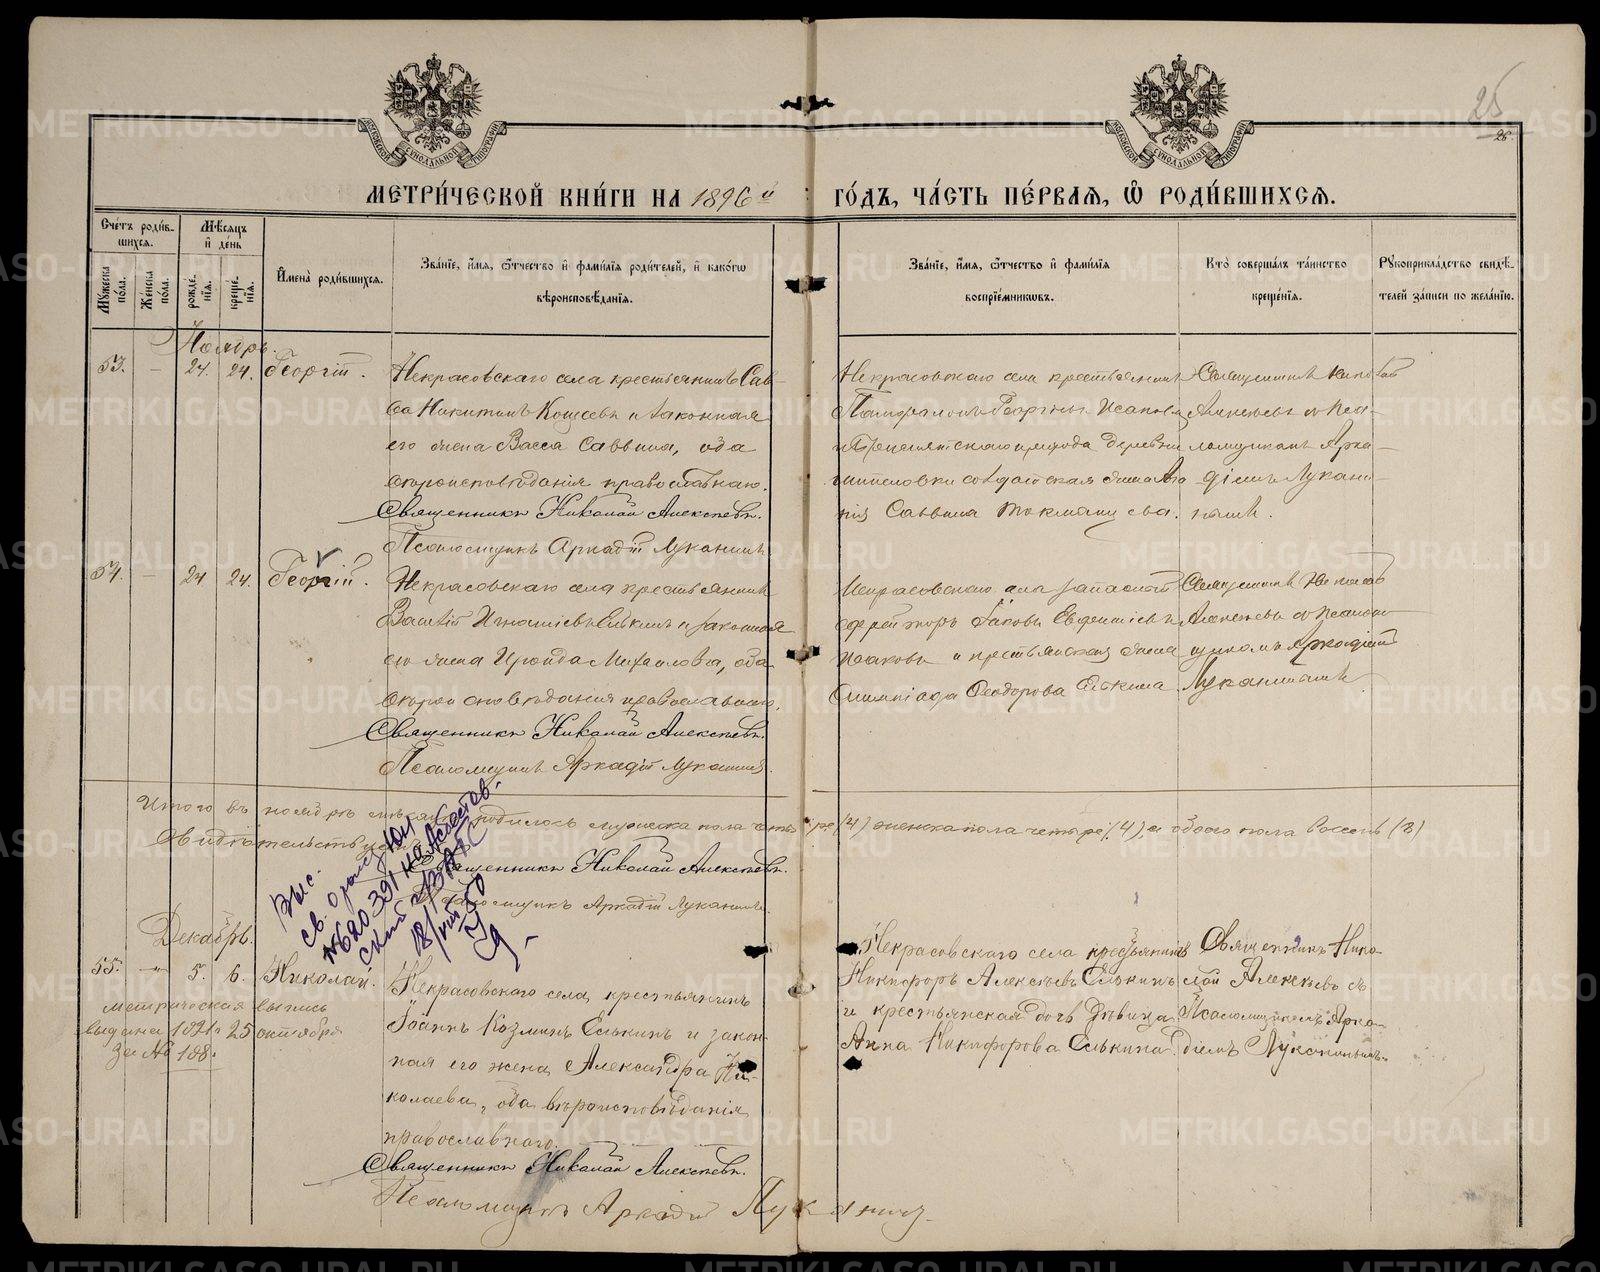 25
26.
МОСКОВСКОЙ СѴНОДАЛЬНОЙ ТИПОГРАФІИ
МОСКОВСКОЙ СѴНОДАЛЬНОЙ ТИПОГРАФІИ
МЕТРИ́ЧЕСКОЙ КНИ́ГИ НА 1896й ГО́ДЪ, ЧА́СТЬ ПЕ́РВАЯ, Ѽ РОДИ́ВШИХСЯ.
Счетъ роди́вшихся.
Му́жеска по́ла.
Же́нска по́ла.
Мѣ́сяцъ и҆ де́нь
рожде́нїя.
креще́нїя.
И҆мена̀ роди́вшихся.
Зва́нїе, и҆́мя, ѻ҆́тчество и҆ фами́лїя роди́телей, и҆ како́гѡ
вѣроисповѣ́данїя.
Зва́нїе, и҆́мя, ѻ҆́тчество и҆ фами́лїя
воспрїе́мникѡвъ.
Кто̀ соверша́лъ та́инство
креще́нїя.
Рꙋкоприкла́дство свидѣ́телей за́писи по жела́нїю.
Ноябрь.
53. — 24. 24. Георгій.
Некрасовскаго села крестьянинъ Сав-
ва Никитинъ Кощеевъ и законная
его жена Васса Саввина, оба
вѣроисповѣданія православнаго.
Священникъ Николай Алексѣевъ.
Псаломщикъ Аркадій Луканинъ
Некрасовскаго села крестьянинъ
Георгій Исаковъ
деревни
солдатская жена
Саввина
Священникъ Николай
Алексѣевъ съ Пса-
ломщикомъ Арка-
діемъ Лукани-
нымъ.
54. — 24 24. Георгій.
Некрасовскаго села крестьянинъ
Василій Игнатіевъ Елькинъ и законная
его жена Ироида Михайлова, оба
вѣроисповѣданія православнаго.
Священникъ Николай Алексѣевъ.
Псаломщикъ Аркадій Луканинъ.
Некрасовскаго села запасный
ефрейторъ Іаковъ Евфиміевъ
Исаковъ и крестьянская жена
Олимпіада Ѳеодорова Елькина.
Священникъ Николай
Алексѣевъ съ Псалом-
щикомъ Аркадіемъ
Луканинымъ
Итого въ ноябрѣ мѣсяцѣ родилось мужеска пола четыре (4) женска пола четыре (4), а обоего пола восемь (8)
Свидѣтельствуемъ
Священникъ Николай Алексѣевъ.
Псаломщикъ Аркадій Луканинъ.
Выс.
св. о рожд. ЮИ
№620391 на Асбестов-
ский ЗАГС
18/VIII 50
Декабрь.
55. — 5. 6. Николай.
Метрическая выпись
выдана 1921 г. 25 октября
за № 188.
Некрасовскаго села, крестьянинъ
Іоаннъ Козминъ Елькинъ и закон-
ная его жена Александра Ни-
колаева, оба вѣроисповѣданія
православнаго.
Священникъ Николай Алексѣевъ.
Псаломщикъ Аркадій Луканинъ.
Некрасовскаго села крестьянинъ
Никифоръ Алексѣевъ Елькинъ
и крестьянская дочь дѣвица
Анна Никифорова Елькина.
Священникъ Нико-
лай Алексѣевъ съ
Псаломщикомъ Арка-
діемъ Луканинымъ.
METRIKI.GASO-URAL.RU